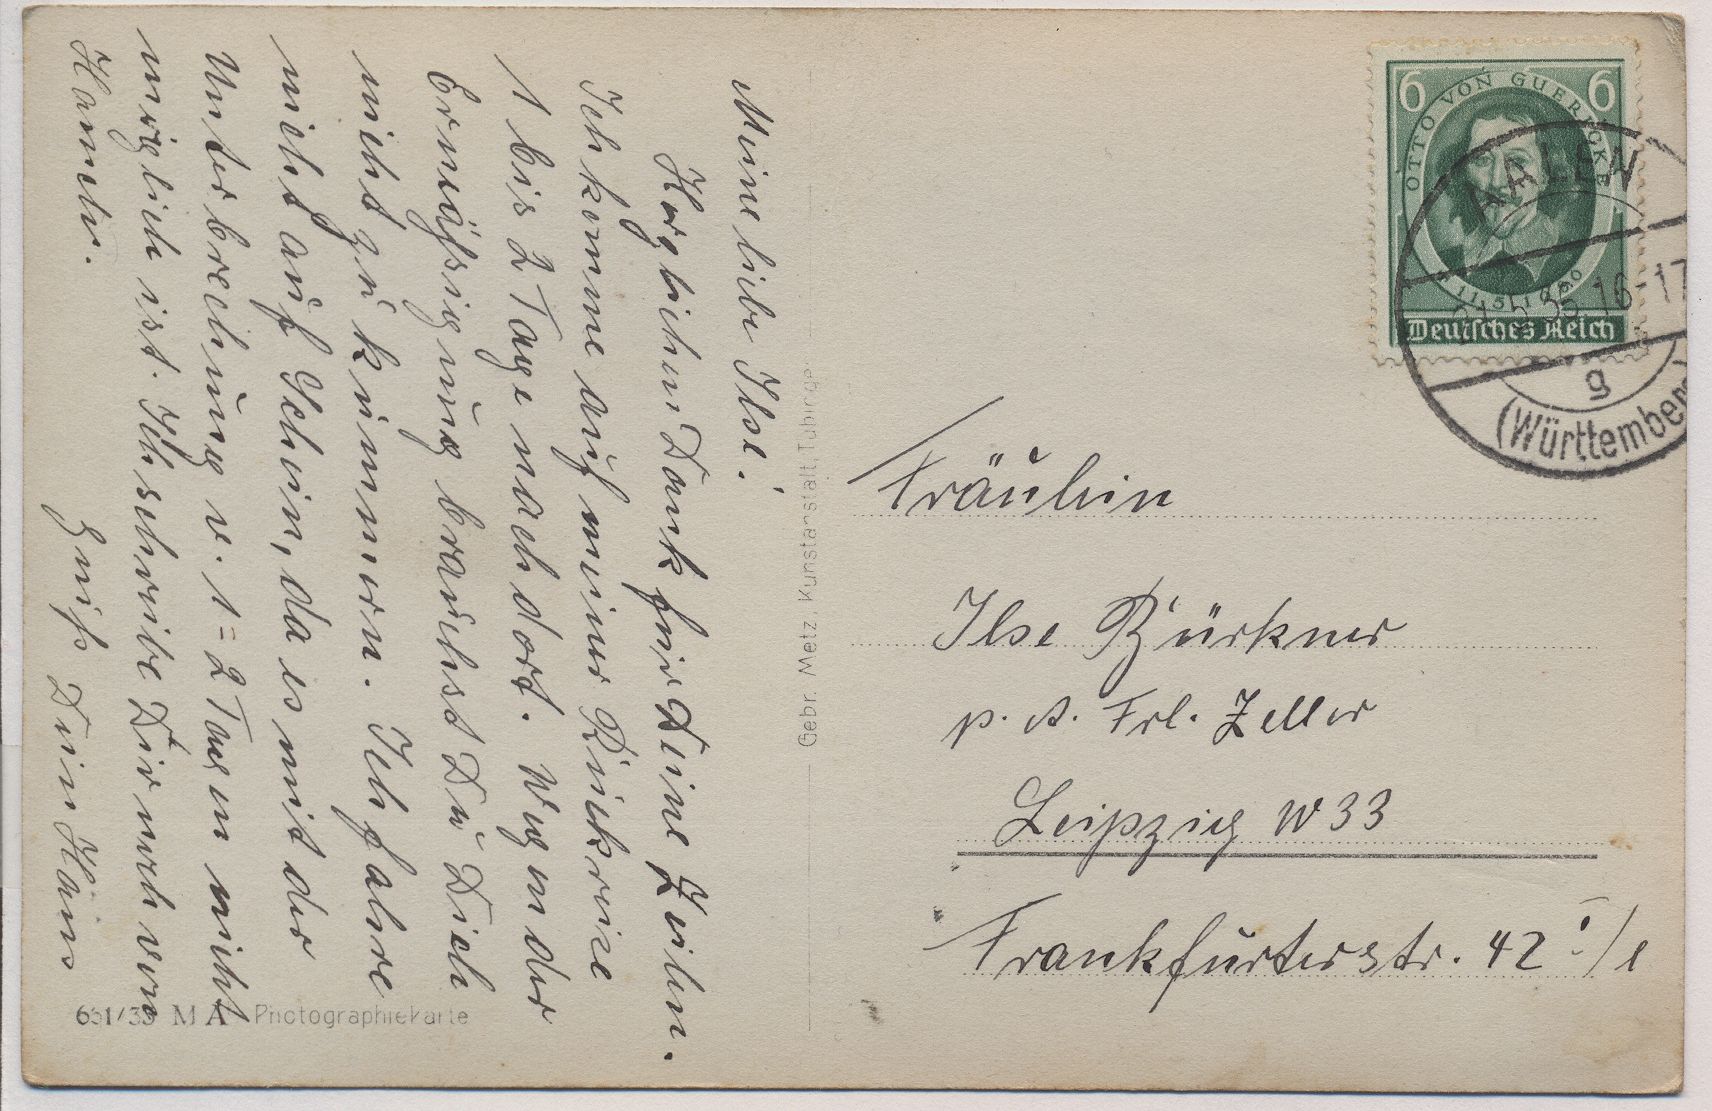 Meine liebe Ilse!
Herzlichen Dank für Deine Zeilen.
Ich komme auf meiner Rückreise
1 bis 2 Tage nach dort. Wegen der
Ermäßigung brauchst Du Dich
nicht zu kümmern. Ich fahre
nicht auf Schein, da es mit der
Unterbrechung v. 1=2 Tagen nicht
möglich ist. Ich schreibe Dir noch von
Hameln.
Gruß Dein Hans
631/35 M A Photographiekarte
Gebr. Metz, Kunstanstalt, Tübingen
6 OTTO VON GUERICKE 6
11.5.1686
Deutsches Reich
AALEN
21.5.36.16-17
g
(Württemberg)
Fräulein
Ilse Bürkner
p. A. Frl. Zeller
Leipzig W33
Frankfurterstr. 42 I/l